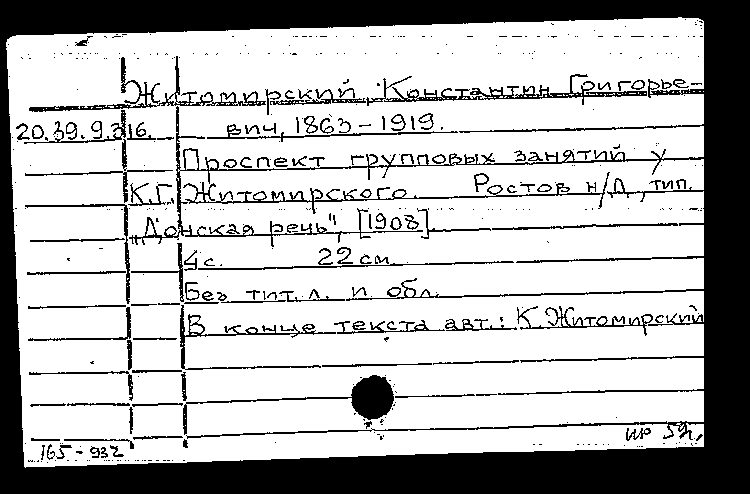 Житомирский, Константин Григорье-
20.39.9.316. вич, 1863-1919.
Проспект групповых занятий у
К.Г. Житомирского. Ростов н/Д, тип.
„Донская речь", [1908].
4с. 22 см.
Без тит. л. и обл.
В конце текста авт.: К. Житомирский
165-932